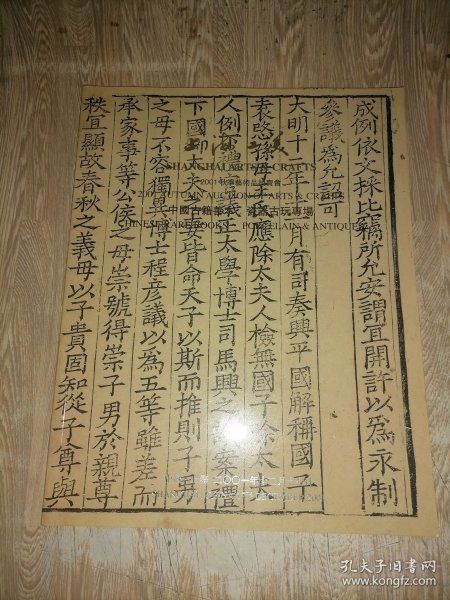 成例依文採比竊所允安謂宜開許以為永制
參議為允詔可
大明十二年 月有司奏興平 國解稱國子
袁愍孫母 氏應除太夫人檢無國子除太夫
人例 禮 議正太學博士司馬興之議案禮
下國卿大夫之妻皆命天子以斯而推則子男
之母不容獨異博士程彦議以為五等雖差而
承家事等公侯之母崇號得崇子男於親尊
秩宜顯故春秋之義母以子貴固知從子尊與
SHANGHAI ARTS & CRAFTS
2001秋季藝術品拍賣會
2001 AUTUMN AUCTION OF ARTS & CRAFTS
中國古籍善本 瓷器古玩專場
CHINESE RARE BOOKS & PORCELAIN & ANTIQUE
二〇〇一年十二月
孔夫子旧书网
www.kongfz.com